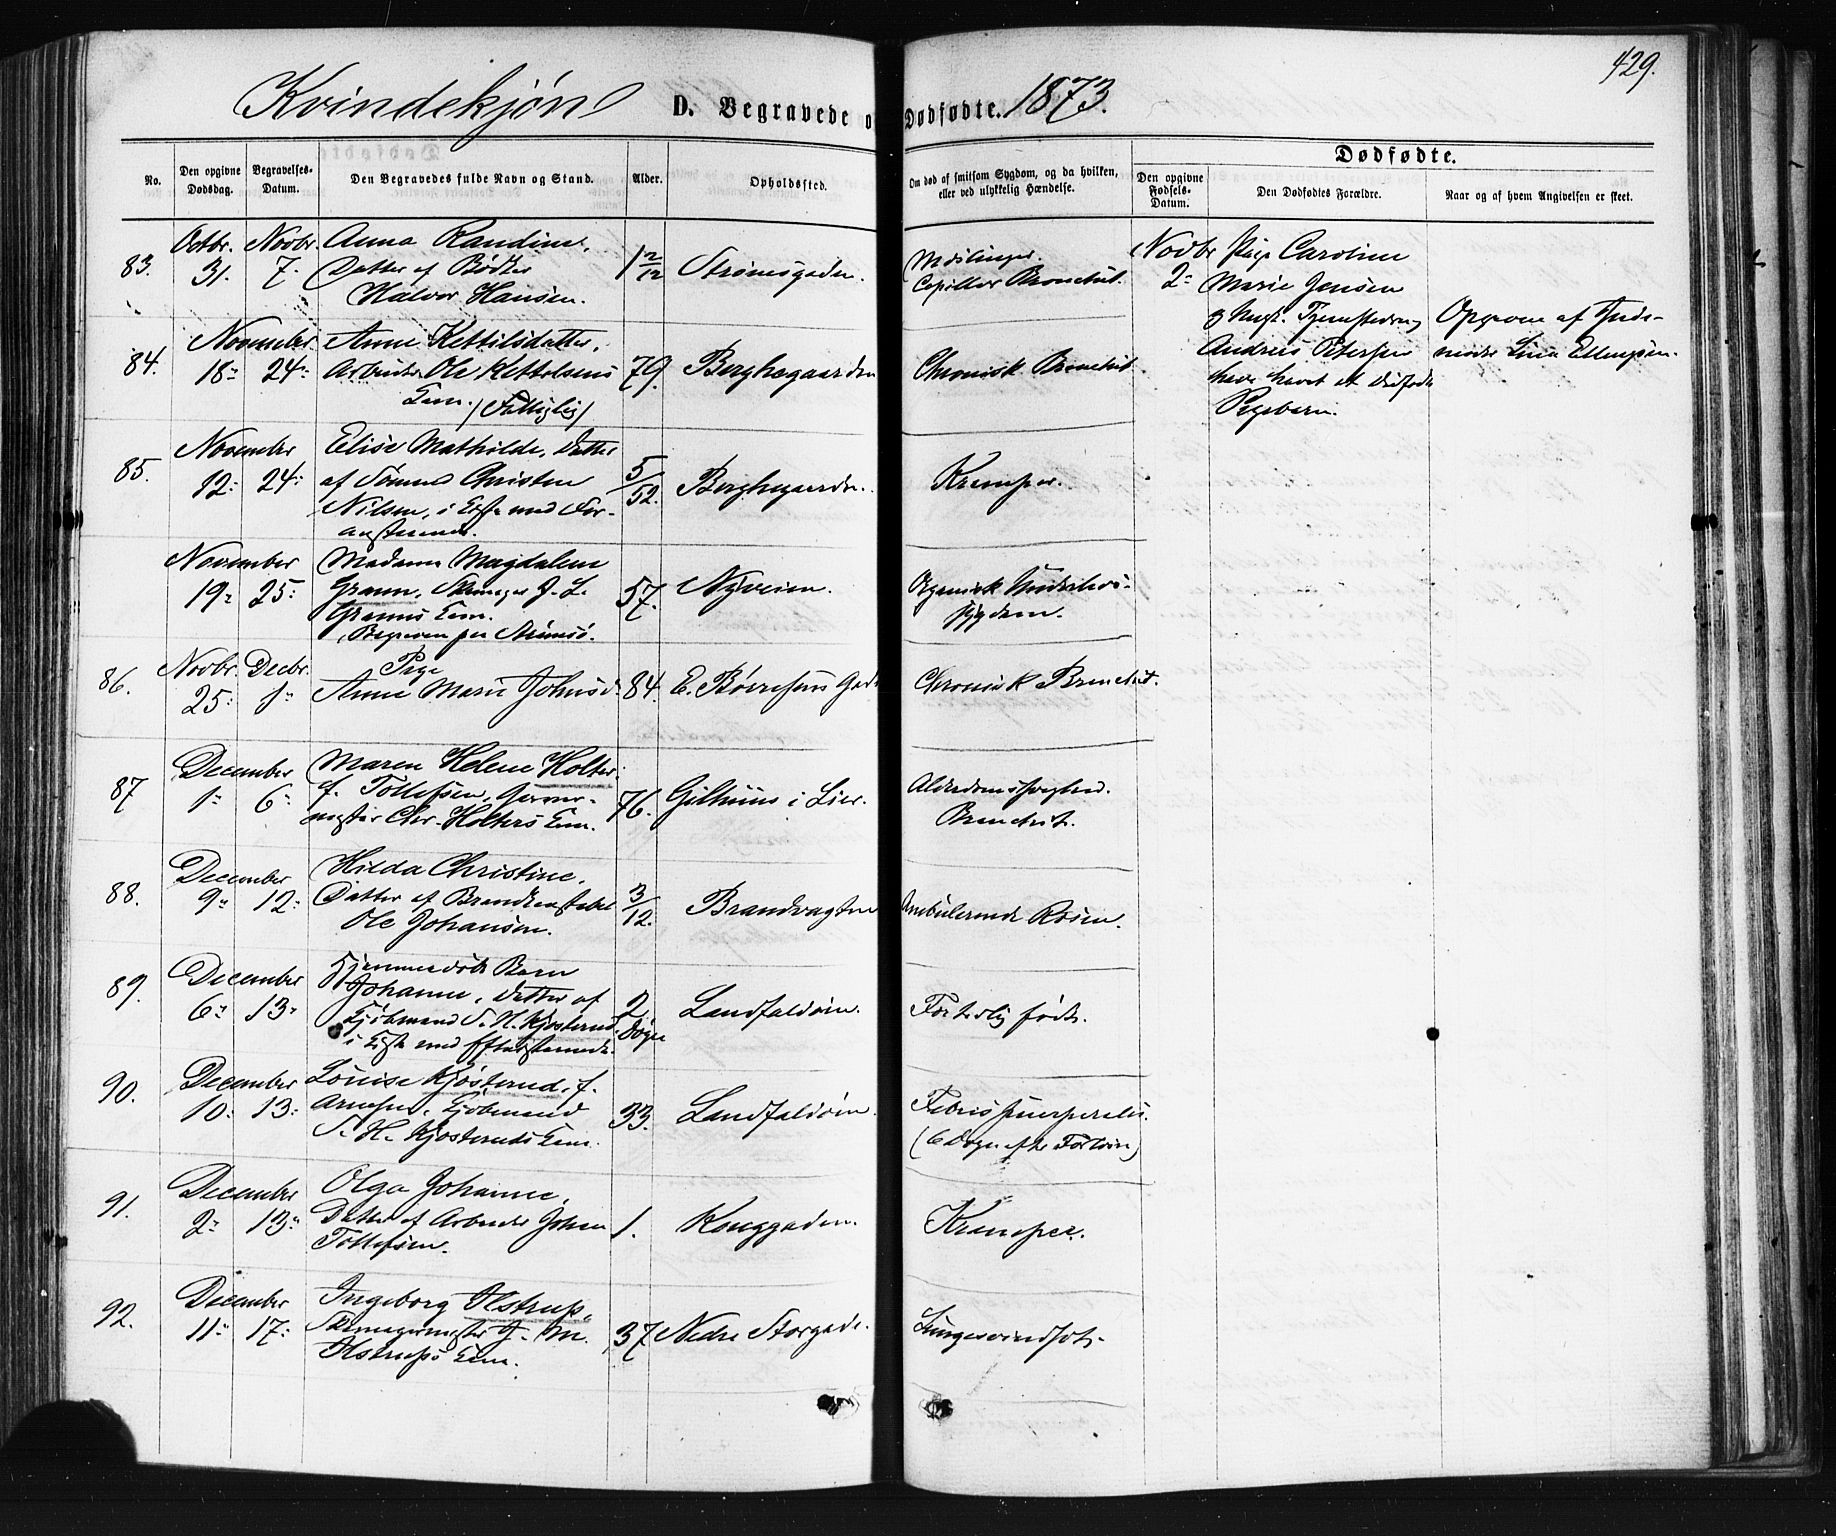 429.
Kvindekjøn D. Begravede o Dødfødte. 1873.
Dødfødte.
No.
Den opgivne Dødsdag.
Begravelses-Datum.
Den Begravedes fulde Navn og Stand.
Alder.
Opholdssted.
Om død af smitsom Sygdom, og da hvilken,
eller ved ulykkelig Hændelse.
Den opgivne Fødsels-Datum.
Den Dødfødtes Forældre.
Naar og af hvem Angivelsen er skeet.
83. Octbr. 31. Novbr. 7. Anna Randine,
Datter af Bødker
Halvor Hansen.
1 2/12 Strømsgaden.
Meslinger.
Capillær Bronchit.
Novbr 2 Pige Caroline
Marie Jensen
Andreas Petersen
have havt et dødfødt
Pigebarn.
Opgiven af Jorde-
moder Lina Ellingsen.
84. November 18 24 Anne Kettilsdatter,
Arbeider Ole Kettelsens
Enke. (Fattiglig)
79. Berghegaarden
Chronisk Bronchit.
85. November 12 24 Elise Mathilde, Datter
af Sømand Christen
Nilsen, i Kiste med For-
anstaaende.
5/52. Berghegaarden.
Kramper.
November 19 25 Madame Magdalene
Gramm, J. L.
Gramms Enke.
Begraven paa Strømsø.
57. Nyveien.
Organisk Underlivs-
sygdom.
86. Novbr. 25 Decbr. 1 Pige
Anne Marie Johnsd.
84. E. Børresens Gade
Chronisk Bronchit.
87 December 1 6 Maren Helene Holter
f. Tollefsen, Garver-
mester Chr. Holters Enke.
76. Gilhuus i Lier.
Alderdomssvaghed.
Bronchit.
88. December 9 12 Hilda Christine,
Datter af Brandkonstabel
Ole Johansen.
3/12. Brandvagten
Ambulerende Rosen.
89. December 6 13 Hjemmedøbt Barn
Johanne, Datter af
Kjøbmand S. H. Kjøsterud,
i Kiste med Efterstaaende.
2 Døgn Landfaldøen.
Fortidlig født.
90. December 10 13 Louise Kjøsterud, f.
Arnesen, Kjøbmand
S. H. Kjøsteruds Enke.
33. Landfaldøen.
Febris puerperalis.
(6 Døgn efter Forløsn)
91. December 2 13 Olga Johanne,
Datter af Arbeider Johan
Tollefsen.
1. Konggaden.
Kramper.
92. December 11 17 Ingeborg Olstrup,
Skomagermester J. M.
Olstrups Enke.
37 Nedre Storgade.
Lungesvindsot.